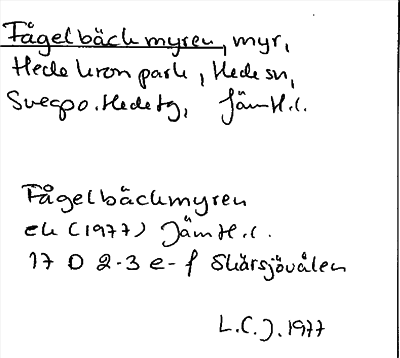 Fågelbäckmyren, myr,
Hede kronpark, Hede sn,
Svegpo. Hede tg, Jämtl.
Fågelbäckmyren
ek (1977) Jämtl.
17 D 2-3 e-f Skärsjövålen
L.C.J. 1977